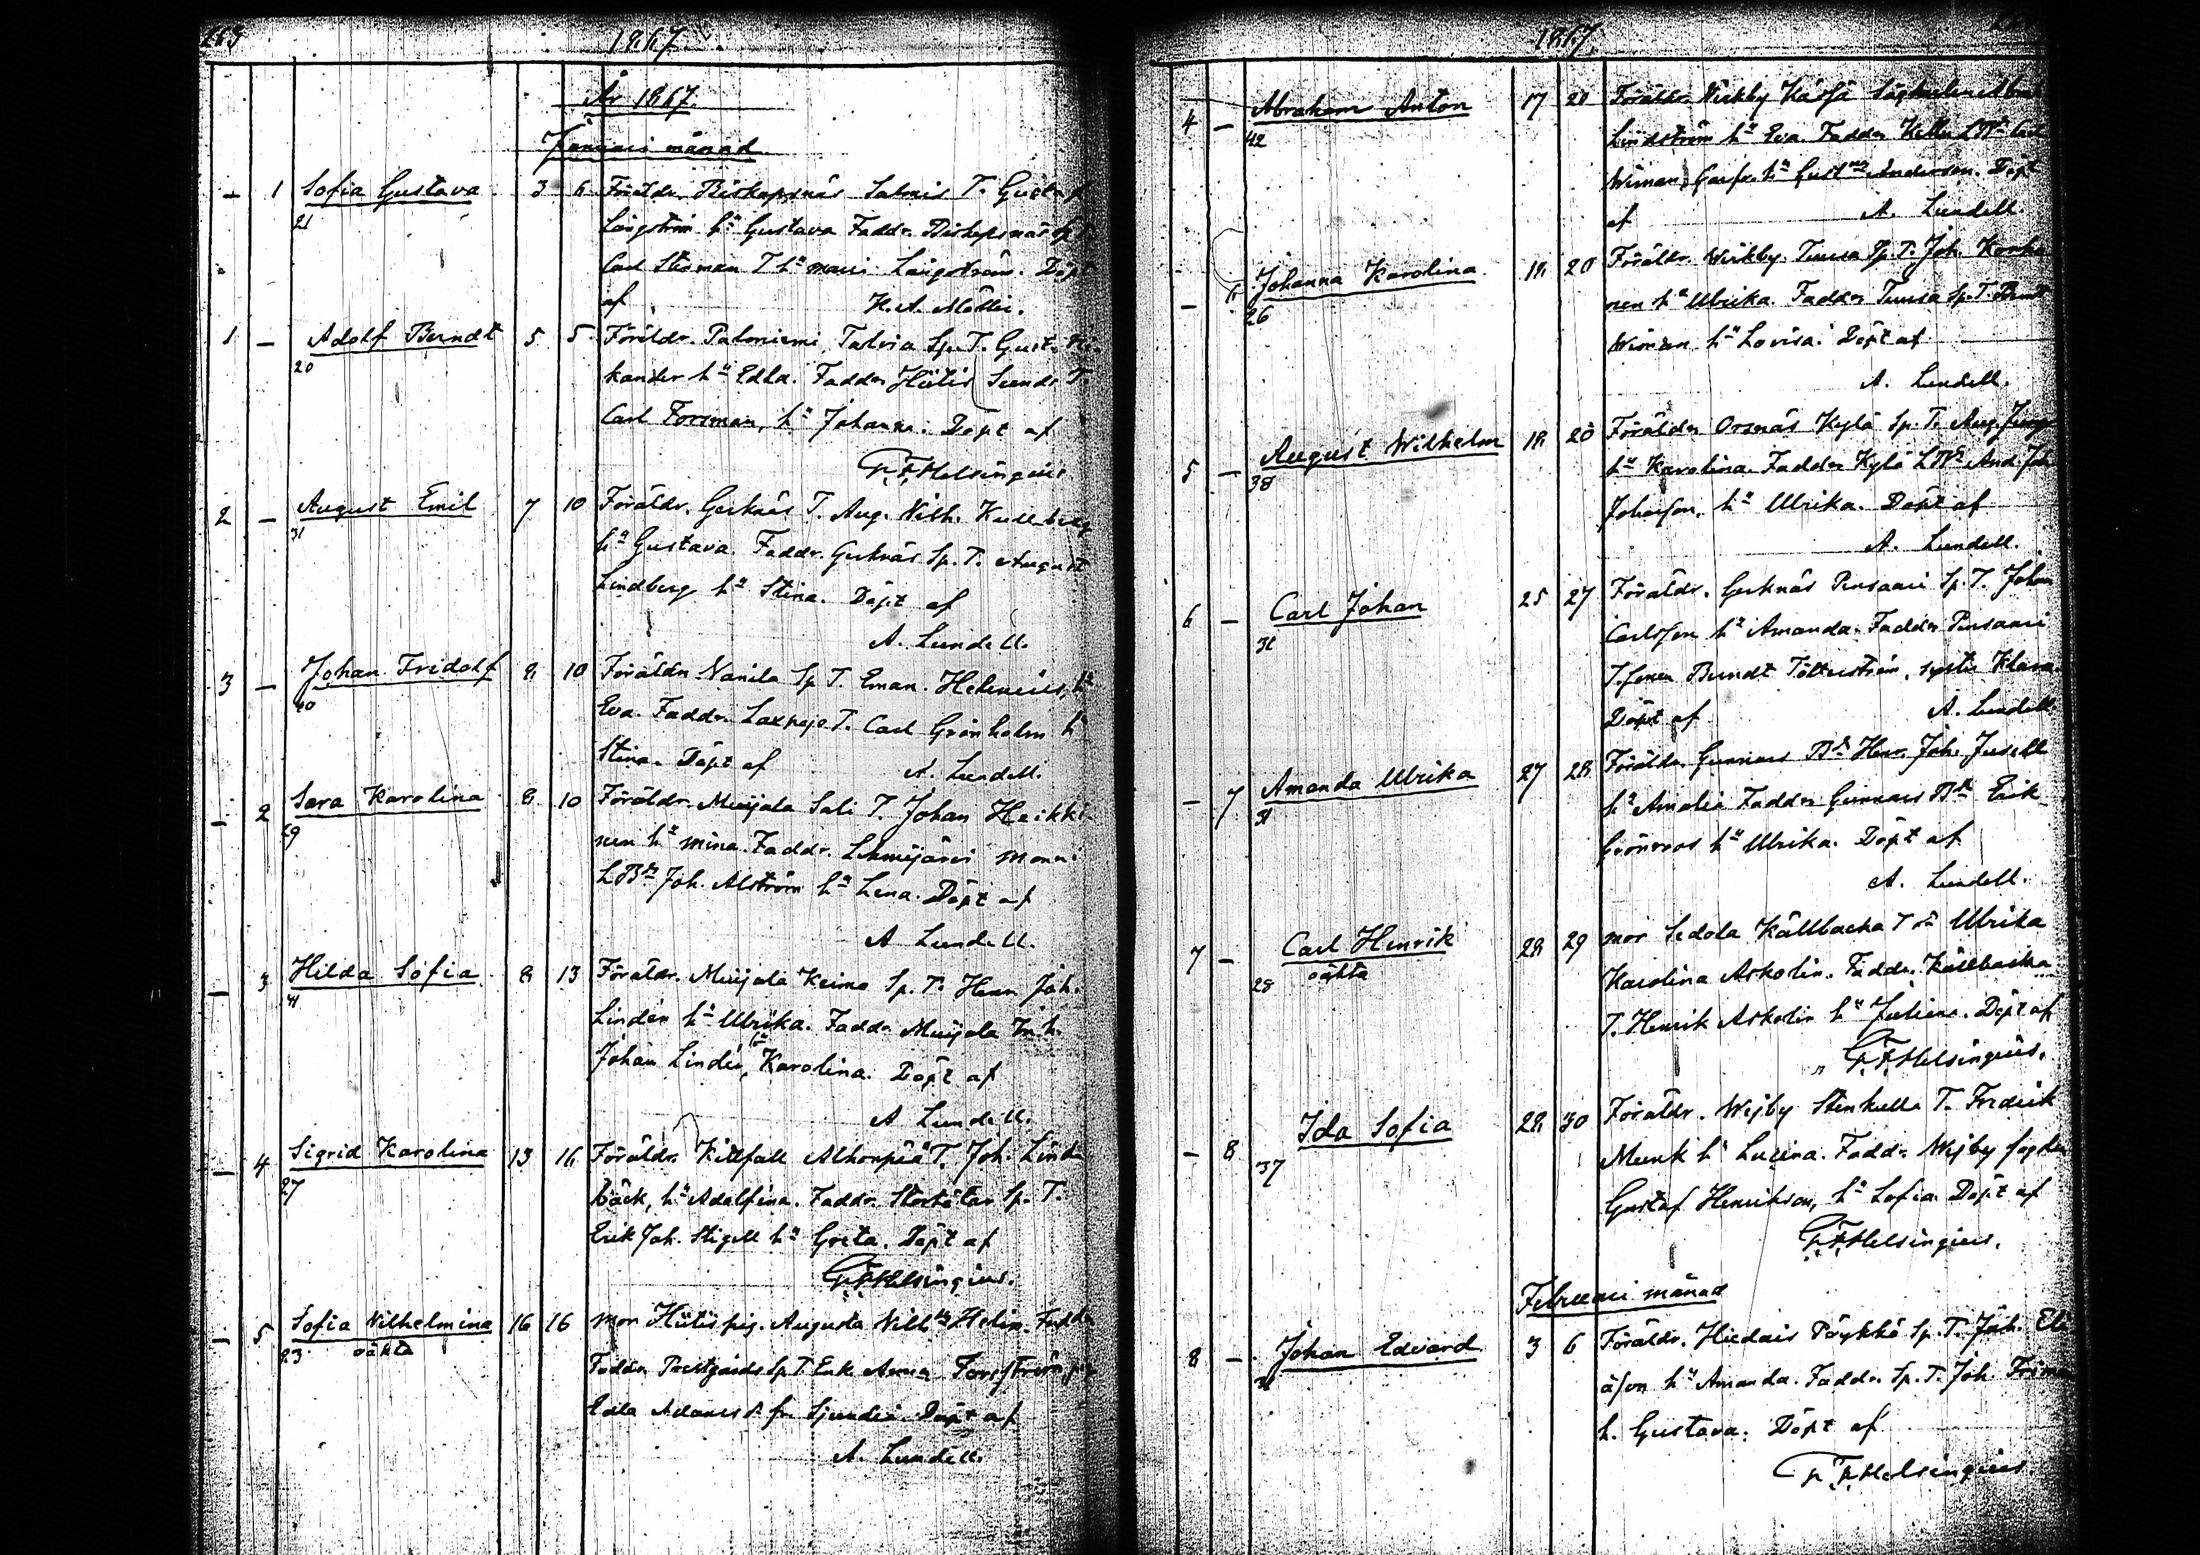 1867.
År 1867.
Januari månad.
– 1 Sofia Gustava 3 6 Föräldr. Biskopsnäs Salmis T. Gustaf
21 Långström hᵘ Gustava Faddr. Biskopsnäs
Carl Stenman T hᵘ Maria Långström. Döpt
af K. A. Malin.
1 – Adolf Berndt 5 5 Föräldr. Paloniemi, Talvia Sp. T. Gust.
20 kander hᵘ Edla. Faddr Hiitis Sunds T.
Carl Forsman, hᵘ Johanna. Döpt af
F. F. Helsingius.
2 – August Emil 7 10 Föräldr. Gerknäs T. Aug. Wilh. Kullberg
31 hᵘ Gustava. Faddr. Gerknäs Sp. T. August
Lindberg hᵘ Stina. Döpt af
A. Lundell.
3 – Johan Fridolf 8 10 Föräldr Vanila Sp T. Eman. Helenius, hᵘ
40 Eva. Faddr. Laxpojo T. Carl Grönholm hᵘ
Stina. Döpt af A. Lundell.
– 2 Sara Karolina 8 10 Föräldr. Muijala Sali T. Johan Heikki-
29 nen hᵘ Mina. Faddr. Lehmijärvi
LBᵈᵉ Joh. Alström hᵘ Lena. Döpt af
A Lundell.
– 3 Hilda Sofia 8 13 Föräldr. Muijala Keima Sp. T. Henr Joh.
41 Lindén hᵘ Ulrika. Faddr Muijala Inh.
Johan Lindén, hᵘ Karolina. Döpt af
A Lundell.
– 4 Sigrid Karolina 13 16 Föräldr. Kittfall Alhonpää T. Joh. Lind-
27 bäck, hᵘ Adolfina. Faddr. Sp. T.
Erik Joh. Stigell hᵘ Greta. Döpt af
F. F. Helsingius.
– 5 Sofia Wilhelmina 16 16 Mor Hiitis pig. Augusta Wilhᵐᵃ Helin. Faddr
23 oäkta Faddr. Sp T. Enk Anna Forsström,
Edla fr. Sjundeå Döpt af
A. Lundell.
1867.
4 – Abraham Anton 17 20 Föräldr. Wirkby Kärfä
42 Lindström hᵘ Eva. Faddr LBᵈᵉ Carl
Wiman, hᵘ Gustᵛᵃ Anderson. Döpt
af A. Lundell.
– 6 Johanna Karolina 18 20 Föräldr. Wirkby. Tuusa Sp. T. Joh. Korho-
26 nen hᵘ Ulrika. Faddr Tuusa Sp. T. Berndt
Wiman hᵘ Lovisa. Döpt af
A. Lundell.
5 – August Wilhelm 18 20 Föräldr Orsnäs Kylä Sp. T. Aug.
38 hᵘ Karolina. Faddr Kylä LBᵈᵉ And. Joh
Johansson, hᵘ Ulrika. Döpt af
A. Lundell.
6 – Carl Johan 25 27 Föräldr. Gerknäs Pensaari Sp. T. Johan
31 Carlsson hᵘ Amanda. Faddr Pensaari
T. sonen Berndt Tötterström, syster Klara
Döpt af A. Lundell
– 7 Amanda Ulrika 27 28 Föräldr. Gunnars Bᵈᵉ Henr. Joh. Jusell
31 hᵘ Amalia Faddr Gunnars Bᵈᵉ Erik
Grönroos hᵘ Ulrika. Döpt af
A. Lundell.
7 – Carl Henrik 28 29 Mor Sedola Källbacka Ulrika
28 oäkta Karolina Askolin. Faddr. Källbacka
T. Henrik Askolin hᵘ Juliana. Döpt af
F. F. Helsingius.
– 8 Ida Sofia 28 30 Föräldr. Wejby Stenkulla T. Fredrik
37 Munk hᵘ Lucina. Faddr. Wejby
Gustaf Henrikson, hᵘ Sofia Döpt af
F. F. Helsingius.
Februari månad
8 – Johan Edvard 3 6 Föräldr. Hiidais Pöykkö Sp. T. Joh. Eli-
asson hᵘ Amanda. Faddr. Sp. T. Joh. Friman
h. Gustava. Döpt af
F. F. Helsingius.